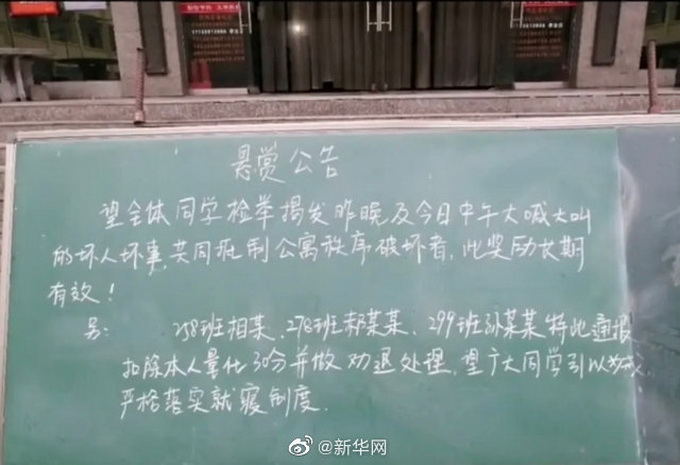 悬赏公告
望全体同学检举揭发昨晚及今日中午大喊大叫
的坏人坏事,共同抵制公寓秩序破坏者,此奖励长期
有效!
另: 258班相某、278班郝某某、299班孙某某特此通报
扣除本人量化30分并做劝退处理,望广大同学引以为戒,
严格落实就寝制度.
@新华网